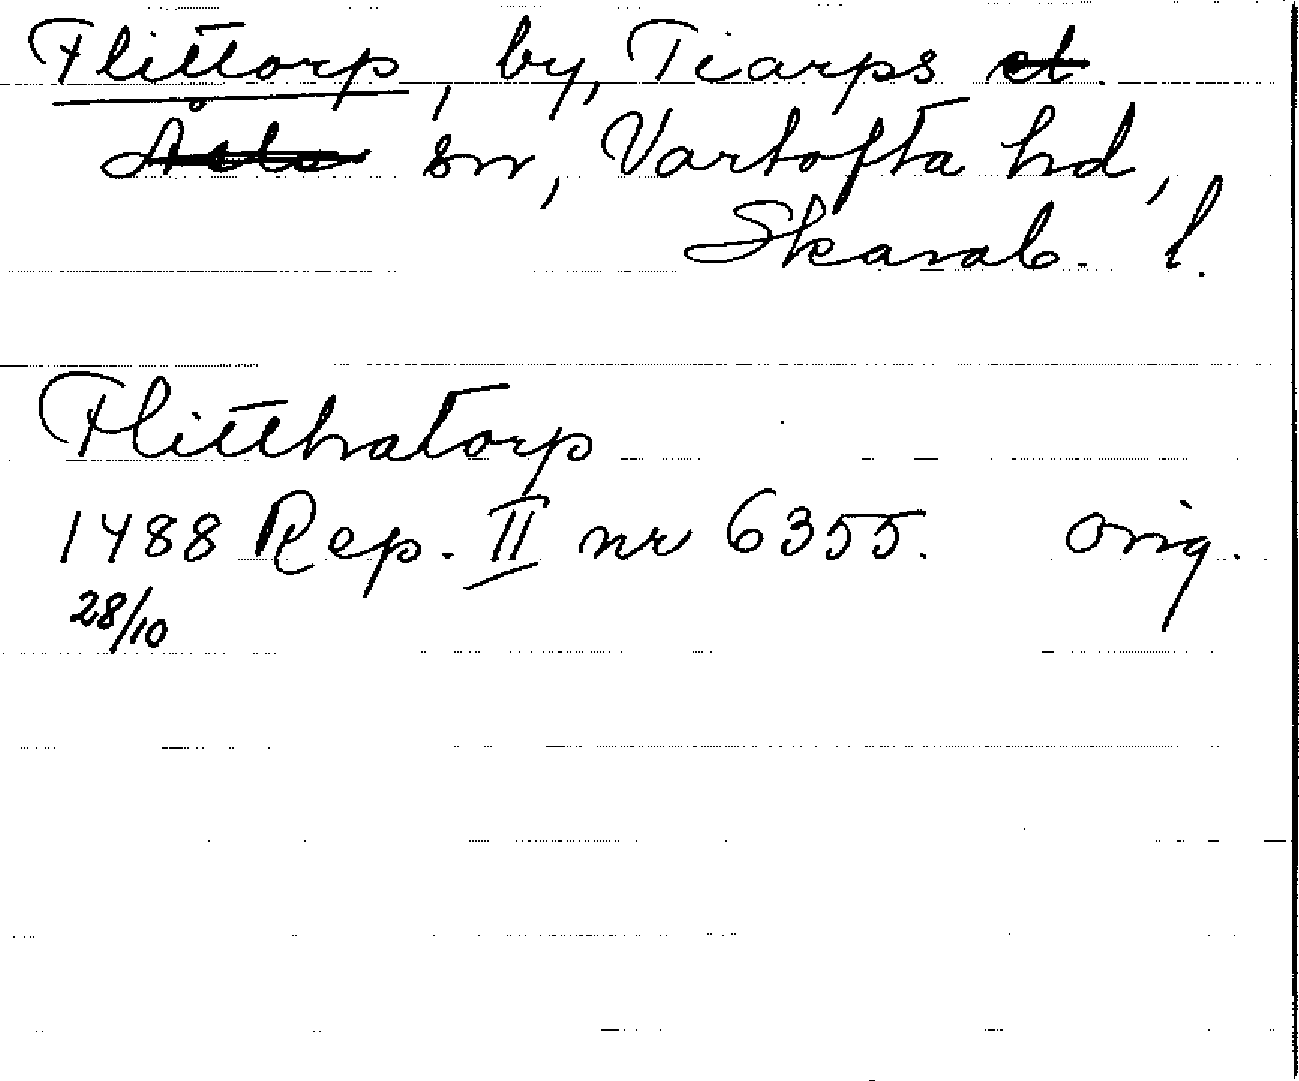 Flittorp, by, Tiarps et
sn, Vartofta hd,
Skarab. l.
Flitthatorp
1488 Rep. II nr 6355. orig.
28/10